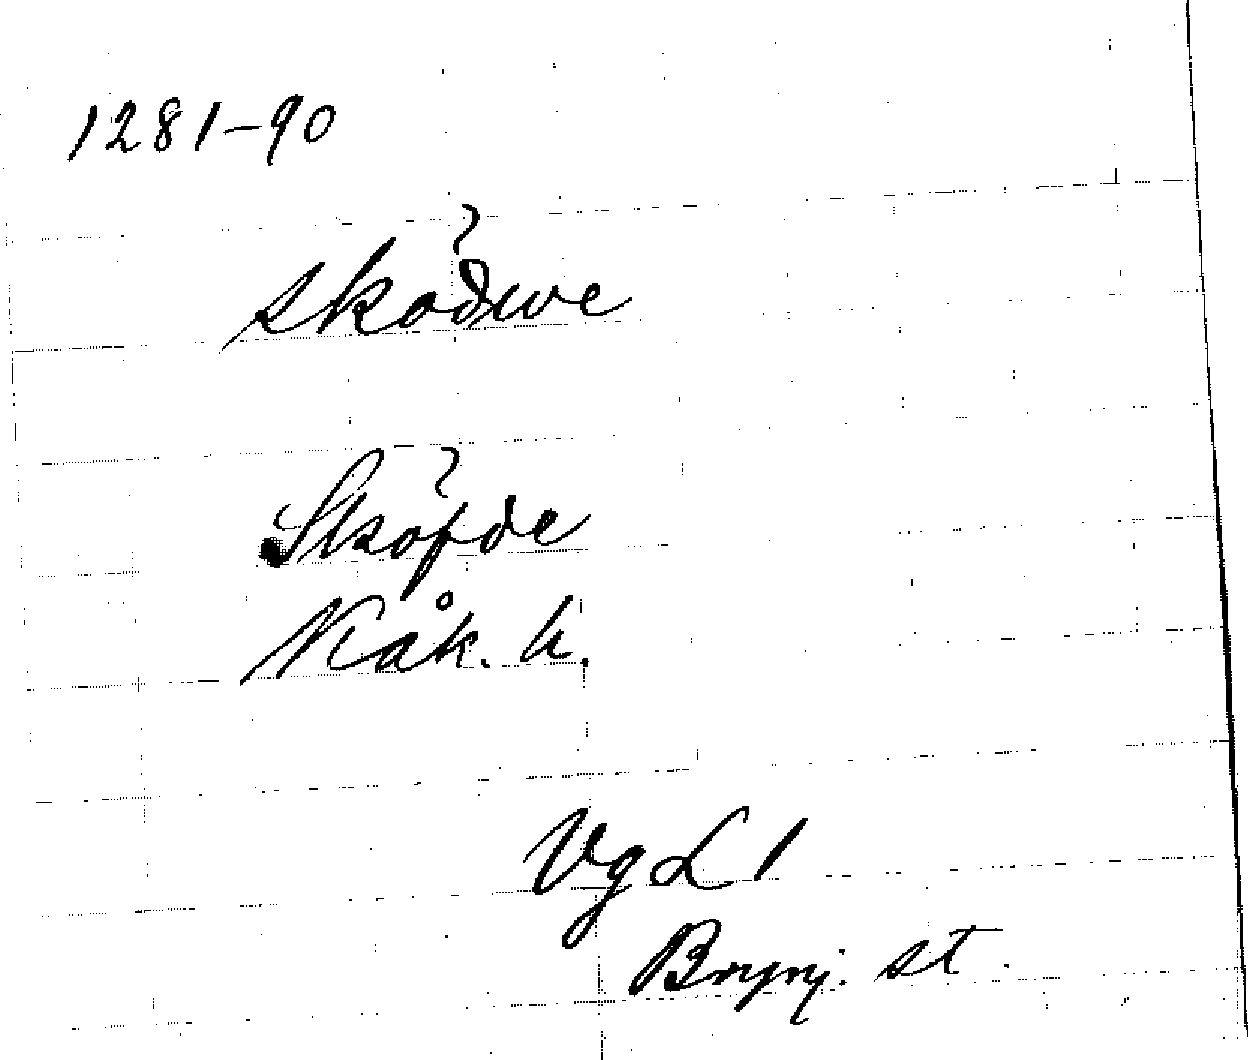 1281-90
skoðwe
Sköfde
Kåk. h.
Vg L 1
Brynj. st.